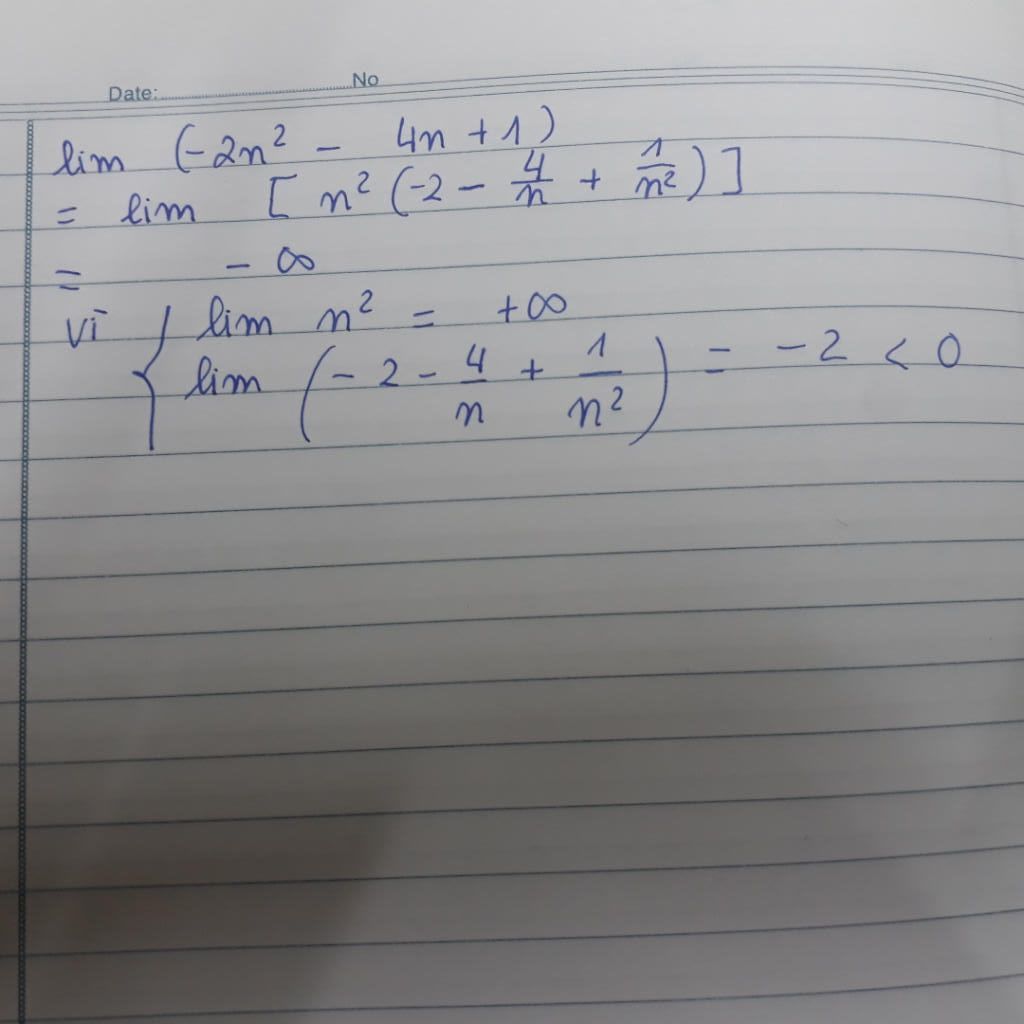 Date: No
lim (-2n² - 4n + 1)
= lim [ n² (-2 - 4/n + 1/n²) ]
= - ∞
vì { lim n² = +∞
lim (-2 - 4/n + 1/n²) = -2 < 0